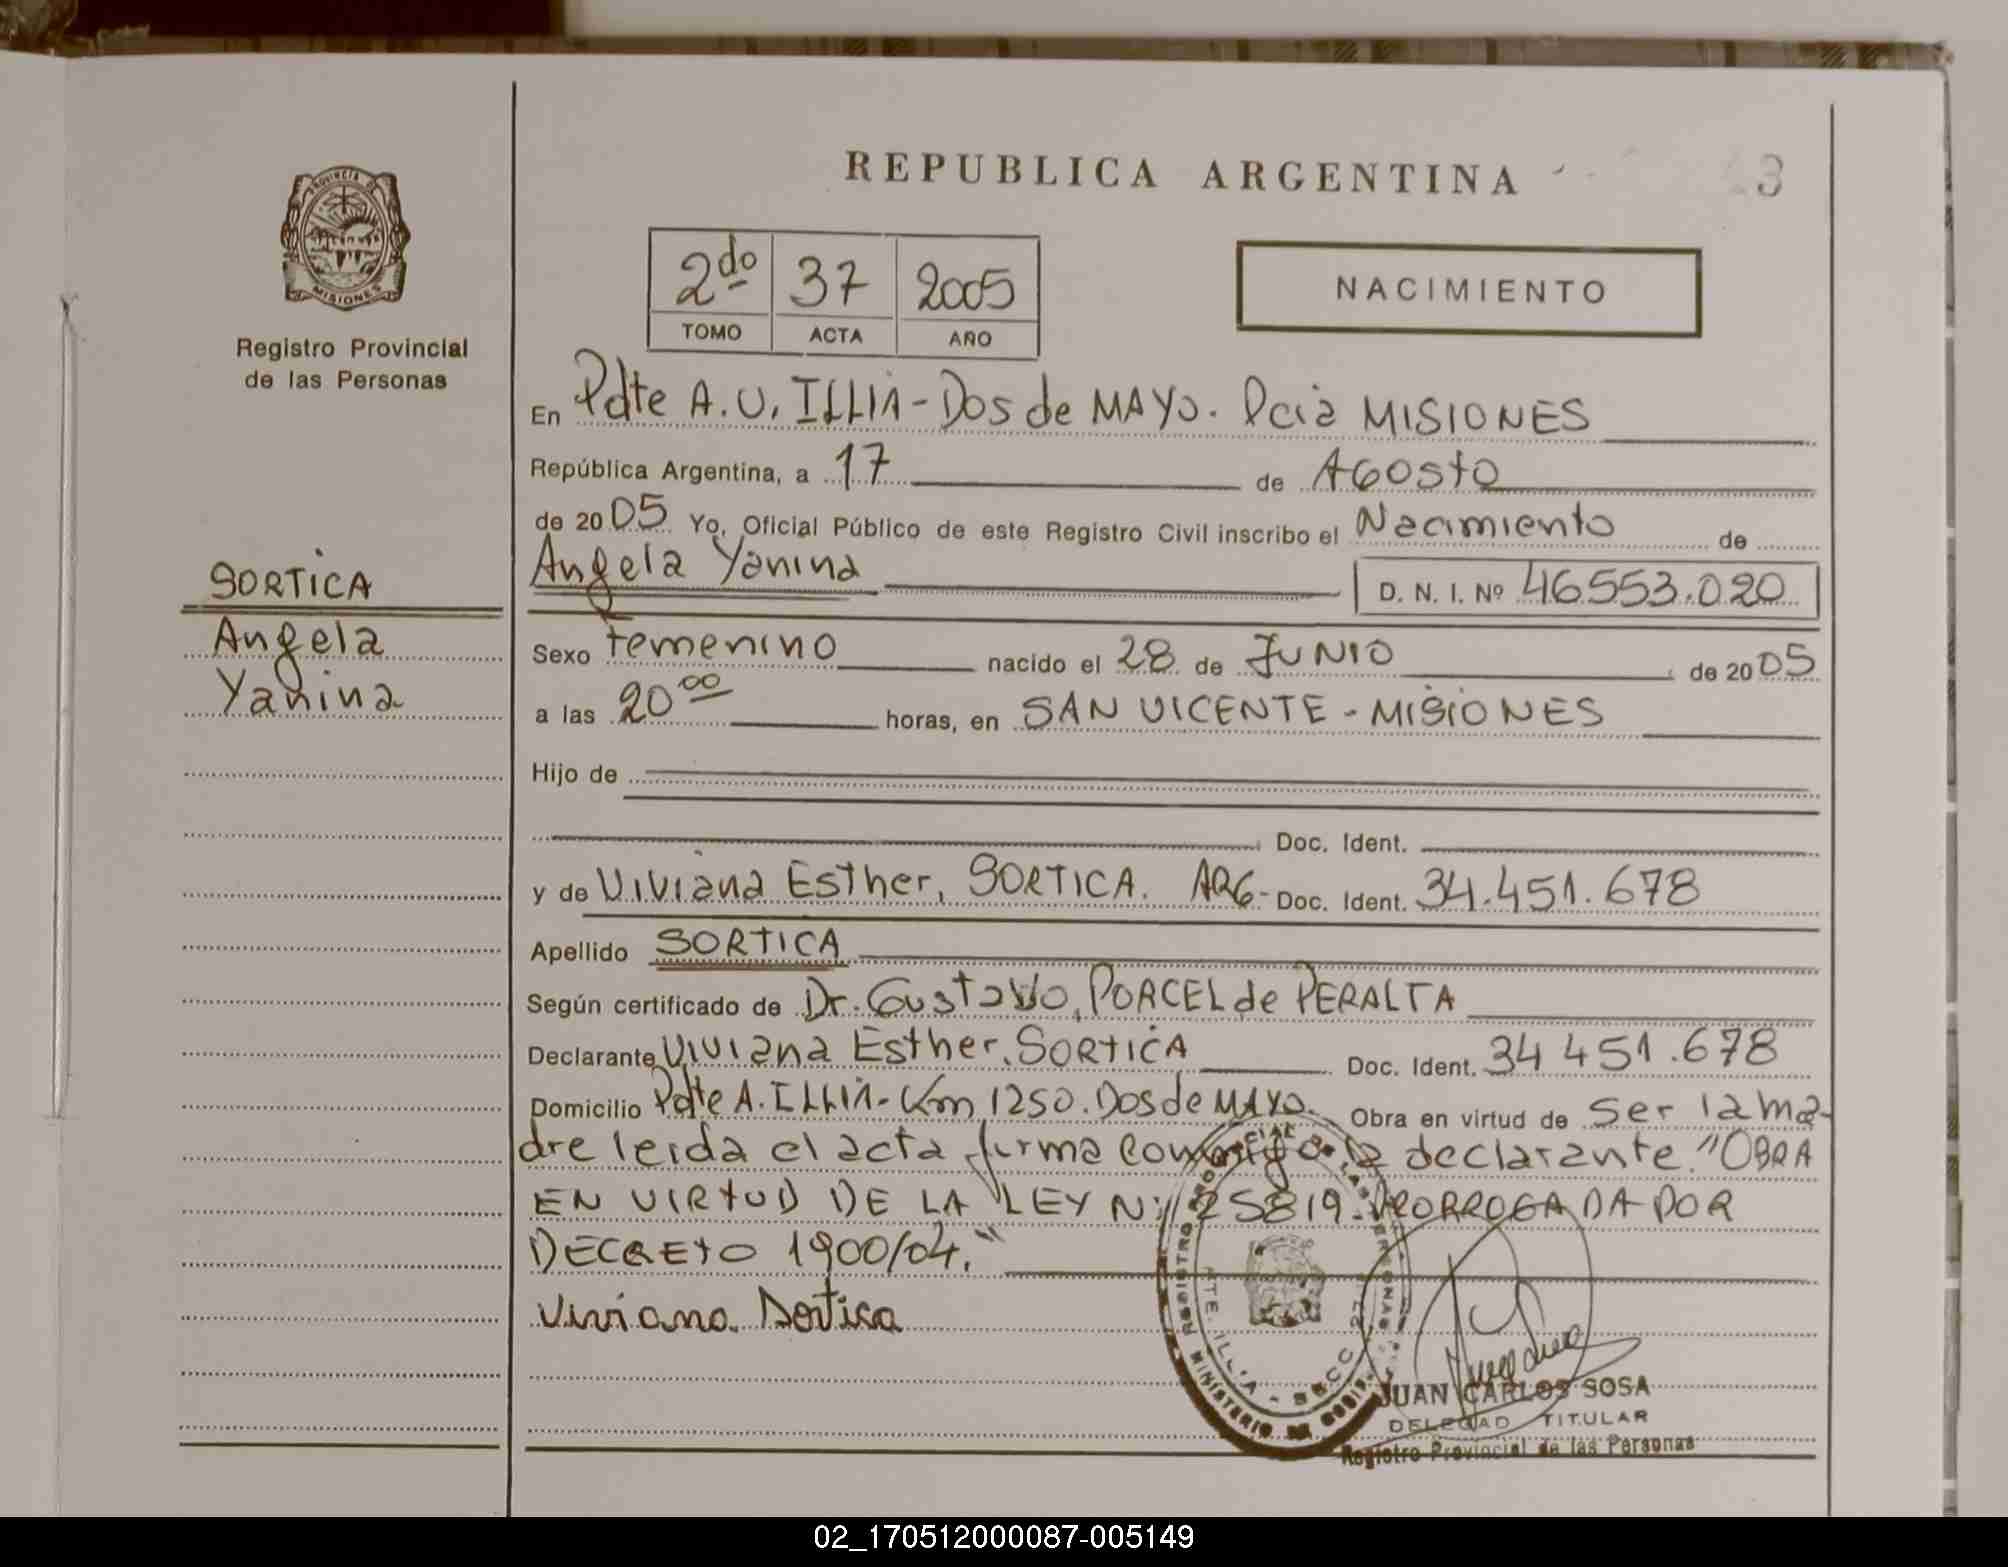 REPUBLICA ARGENTINA
3
PROVINCIA DE
MISIONES
Registro Provincial
de las Personas
2do 37 2005
TOMO ACTA AÑO
NACIMIENTO
En Pdte A.U. ILLIA - Dos de MAYO. Pcia MISIONES
República Argentina, a 17 de AGOSTO
de 2005 Yo, Oficial Público de este Registro Civil inscribo el Nacimiento de
Angela Yanina D. N. I. Nº 46553.020
SORTICA
Angela
Yanina
Sexo Femenino nacido el 28 de JUNIO de 2005
a las 20 00 horas, en SAN VICENTE - MISIONES
Hijo de
Doc. Ident.
y de Viviana Esther, SORTICA. ARG- Doc. Ident. 34.451.678
Apellido SORTICA
Según certificado de Dr. Gustavo, PORCEL de PERALTA
Declarante Viviana Esther. SORTICA Doc. Ident. 34 451.678
Domicilio Pdte A. ILLIA - Km 1250. Dos de MAYO. Obra en virtud de ser la ma-
dre leida el acta firma conmigo la declarante. "OBRA
EN VIRTUD DE LA LEY Nº 25819. PRORROGADA POR
DECRETO 1900/04."
Viviana Sortica
REGISTRO PROVINCIAL DE LAS PERSONAS
PTE. ILLIA - SECC. 27
MINISTERIO DE GOBIE
JUAN CARLOS SOSA
DELEGAD TITULAR
Registro Provincial de las Personas
02_170512000087-005149